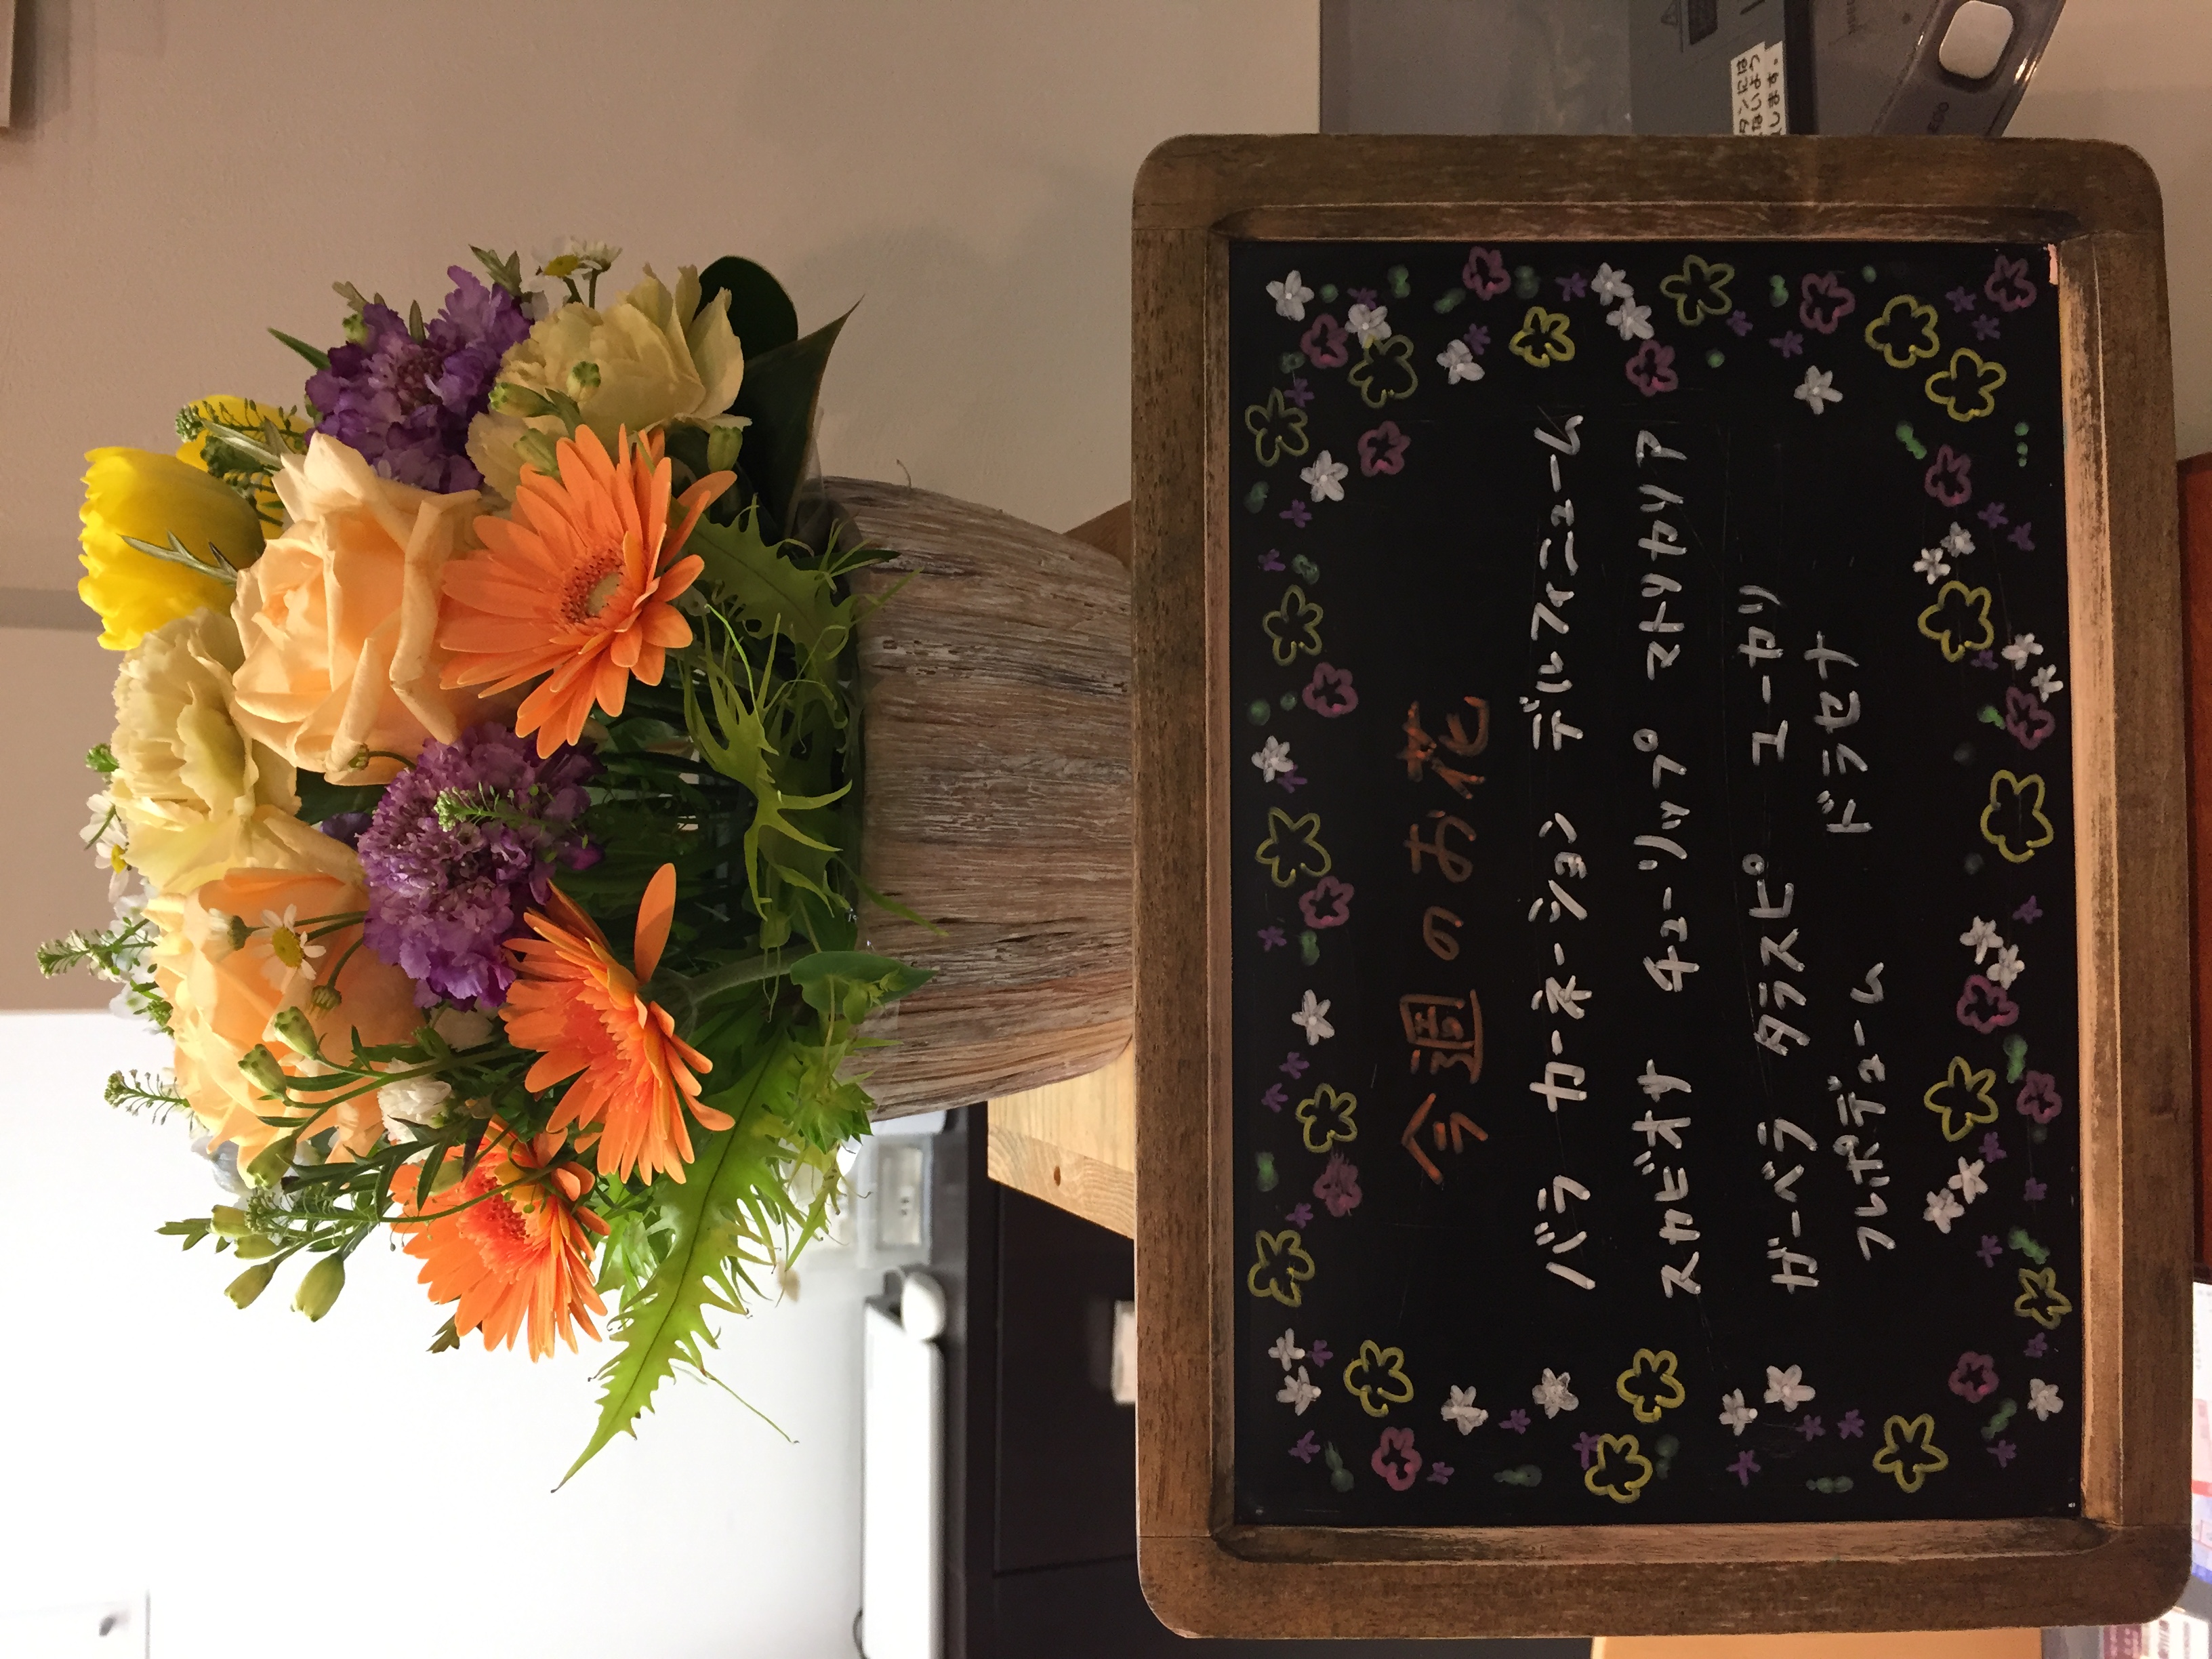 今週のお花
バラ カーネーション デルフィニューム
スカビオサ チューリップ マトリカリア
ガーベラ タラスピ ユーカリ
フレボデューム ドラセナ
タンには
ないよう
します。